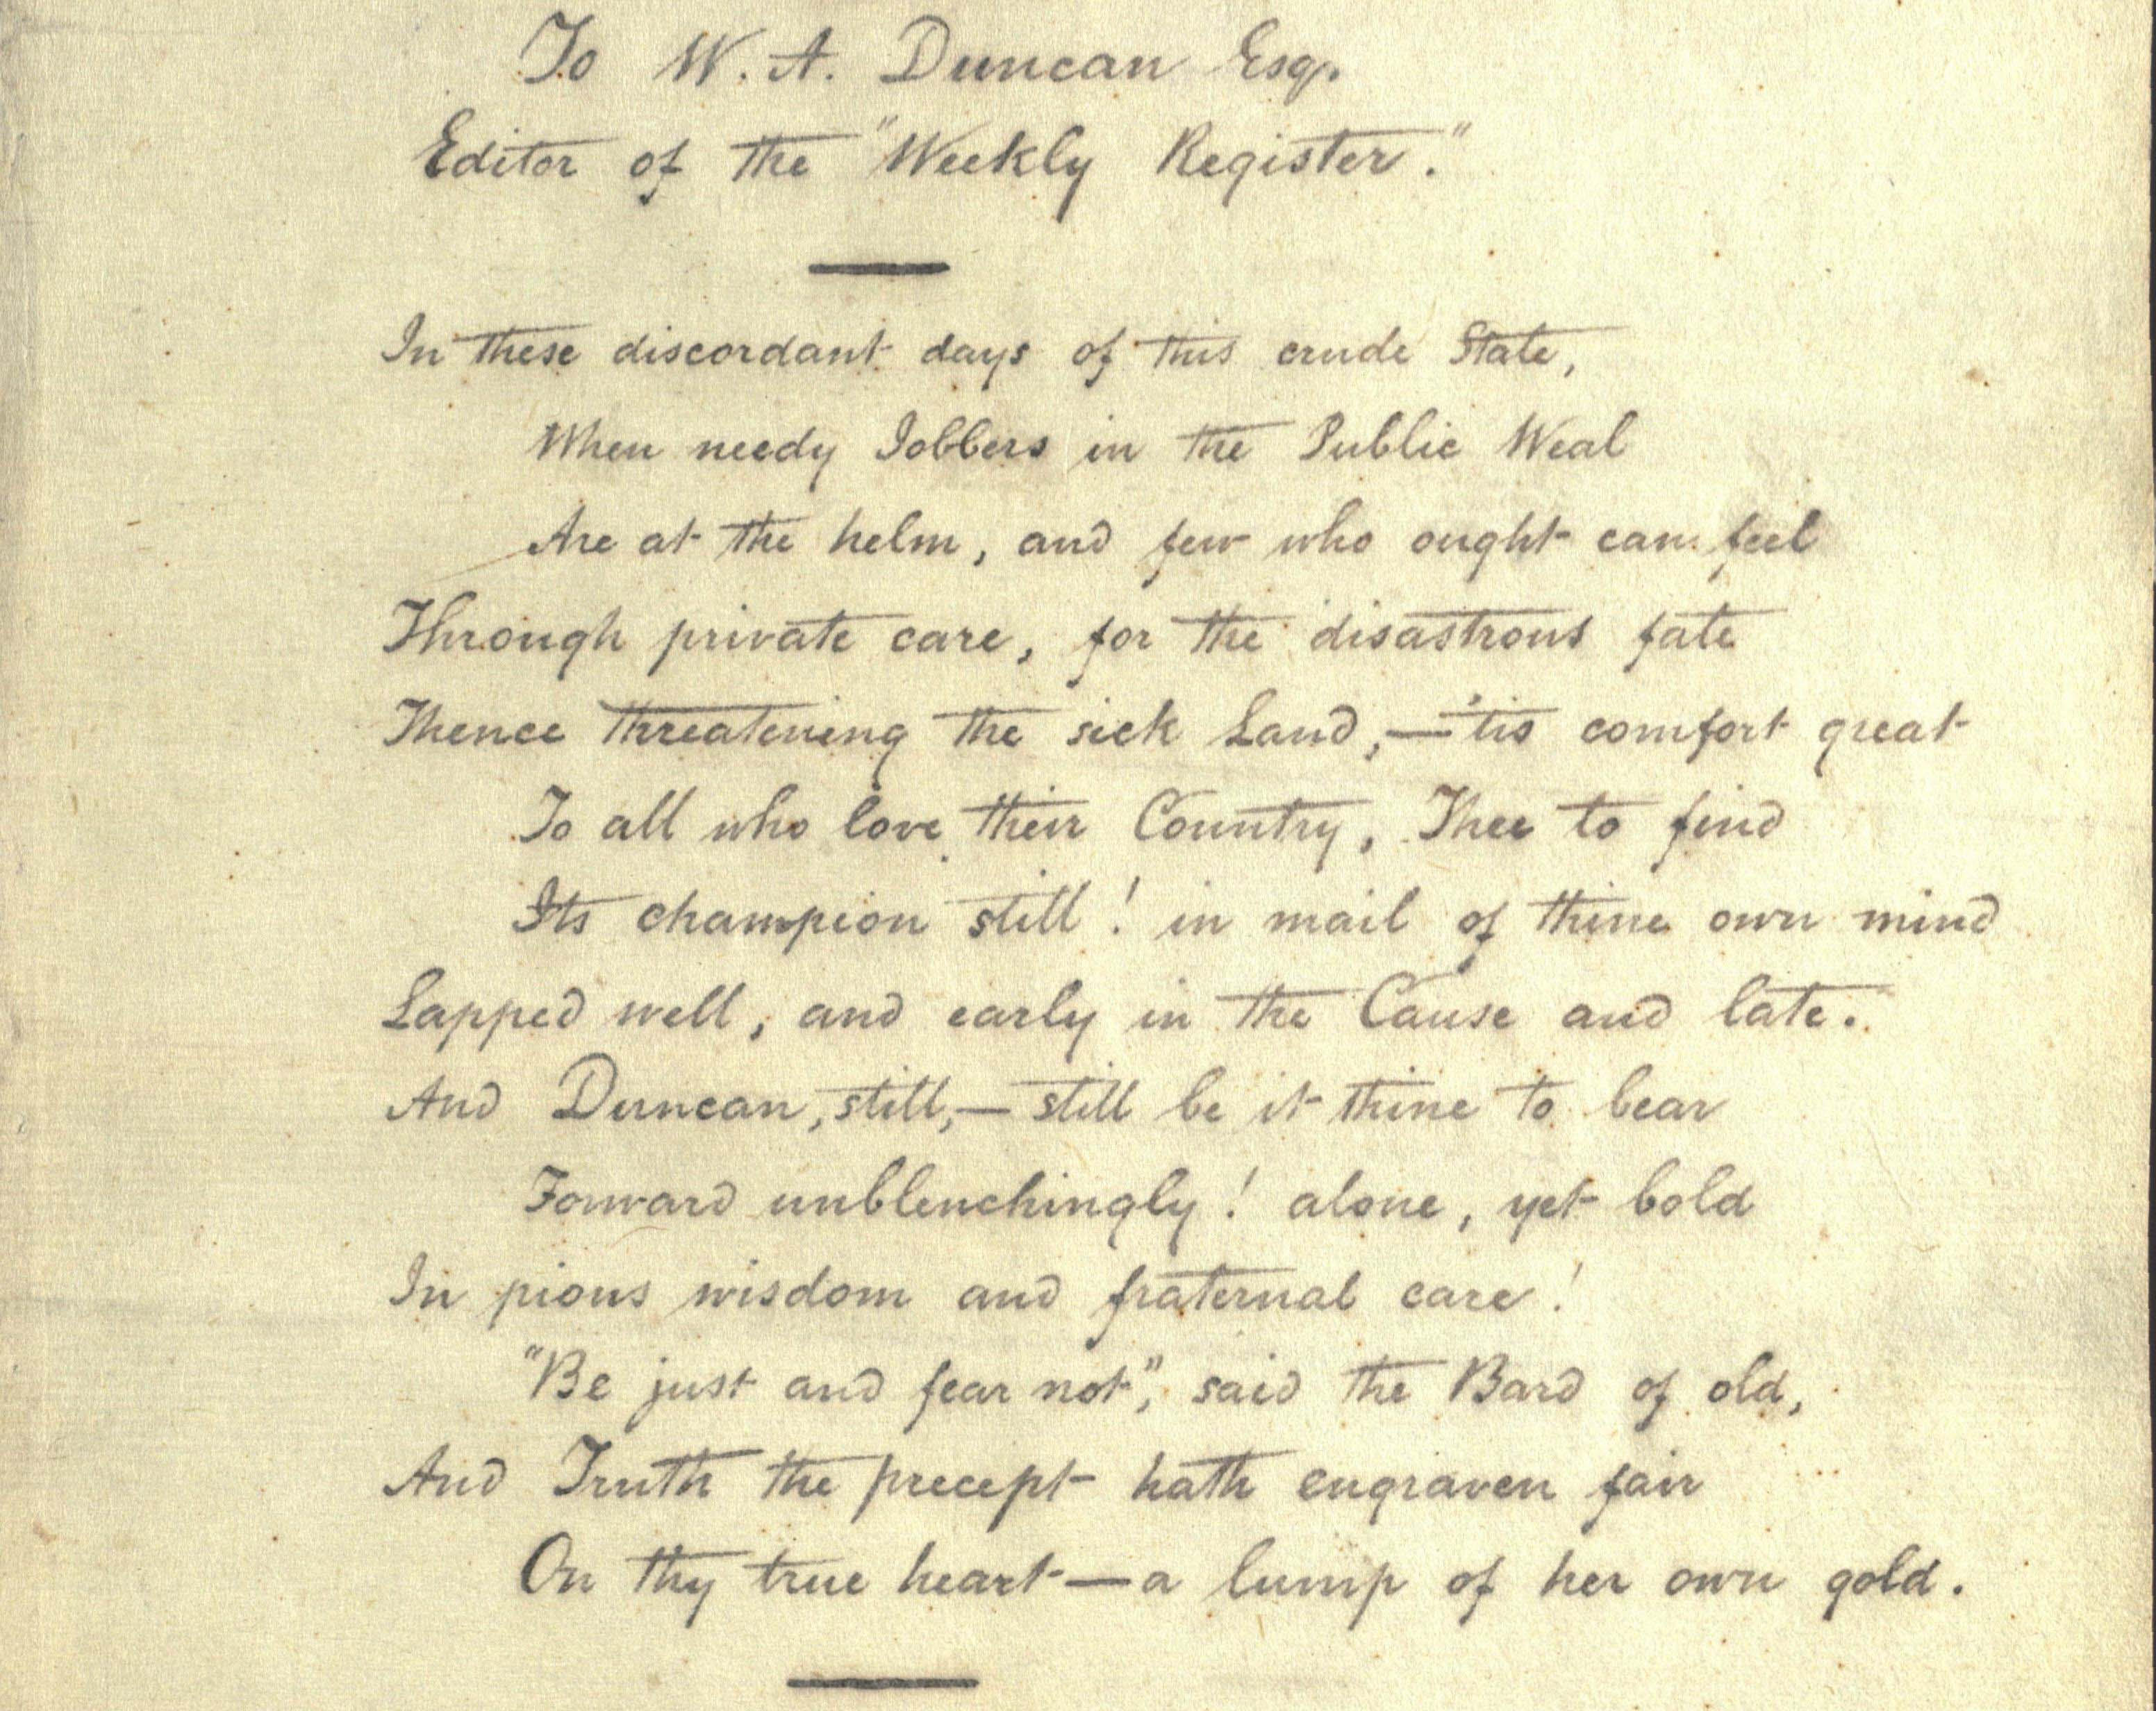 To W. A. Duncan Esq.
Editor of the "Weekly Register."
In these discordant days of this crude State,
When needy Jobbers in the Public Weal
Are at the helm, and few who ought can feel
Through private care, for the disastrous fate
Thence threatening the sick Land,—'tis comfort great
To all who love their Country, Thee to find
Its champion still! in mail of thine own mind
Lapped well, and early in the Cause and late.
And Duncan, still,—still be it thine to bear
Forward unblenchingly! alone, yet bold
In pious wisdom and fraternal care!
"Be just and fear not", said the Bard of old,
And Truth the precept hath engraven fair
On thy true heart—a lump of her own gold.